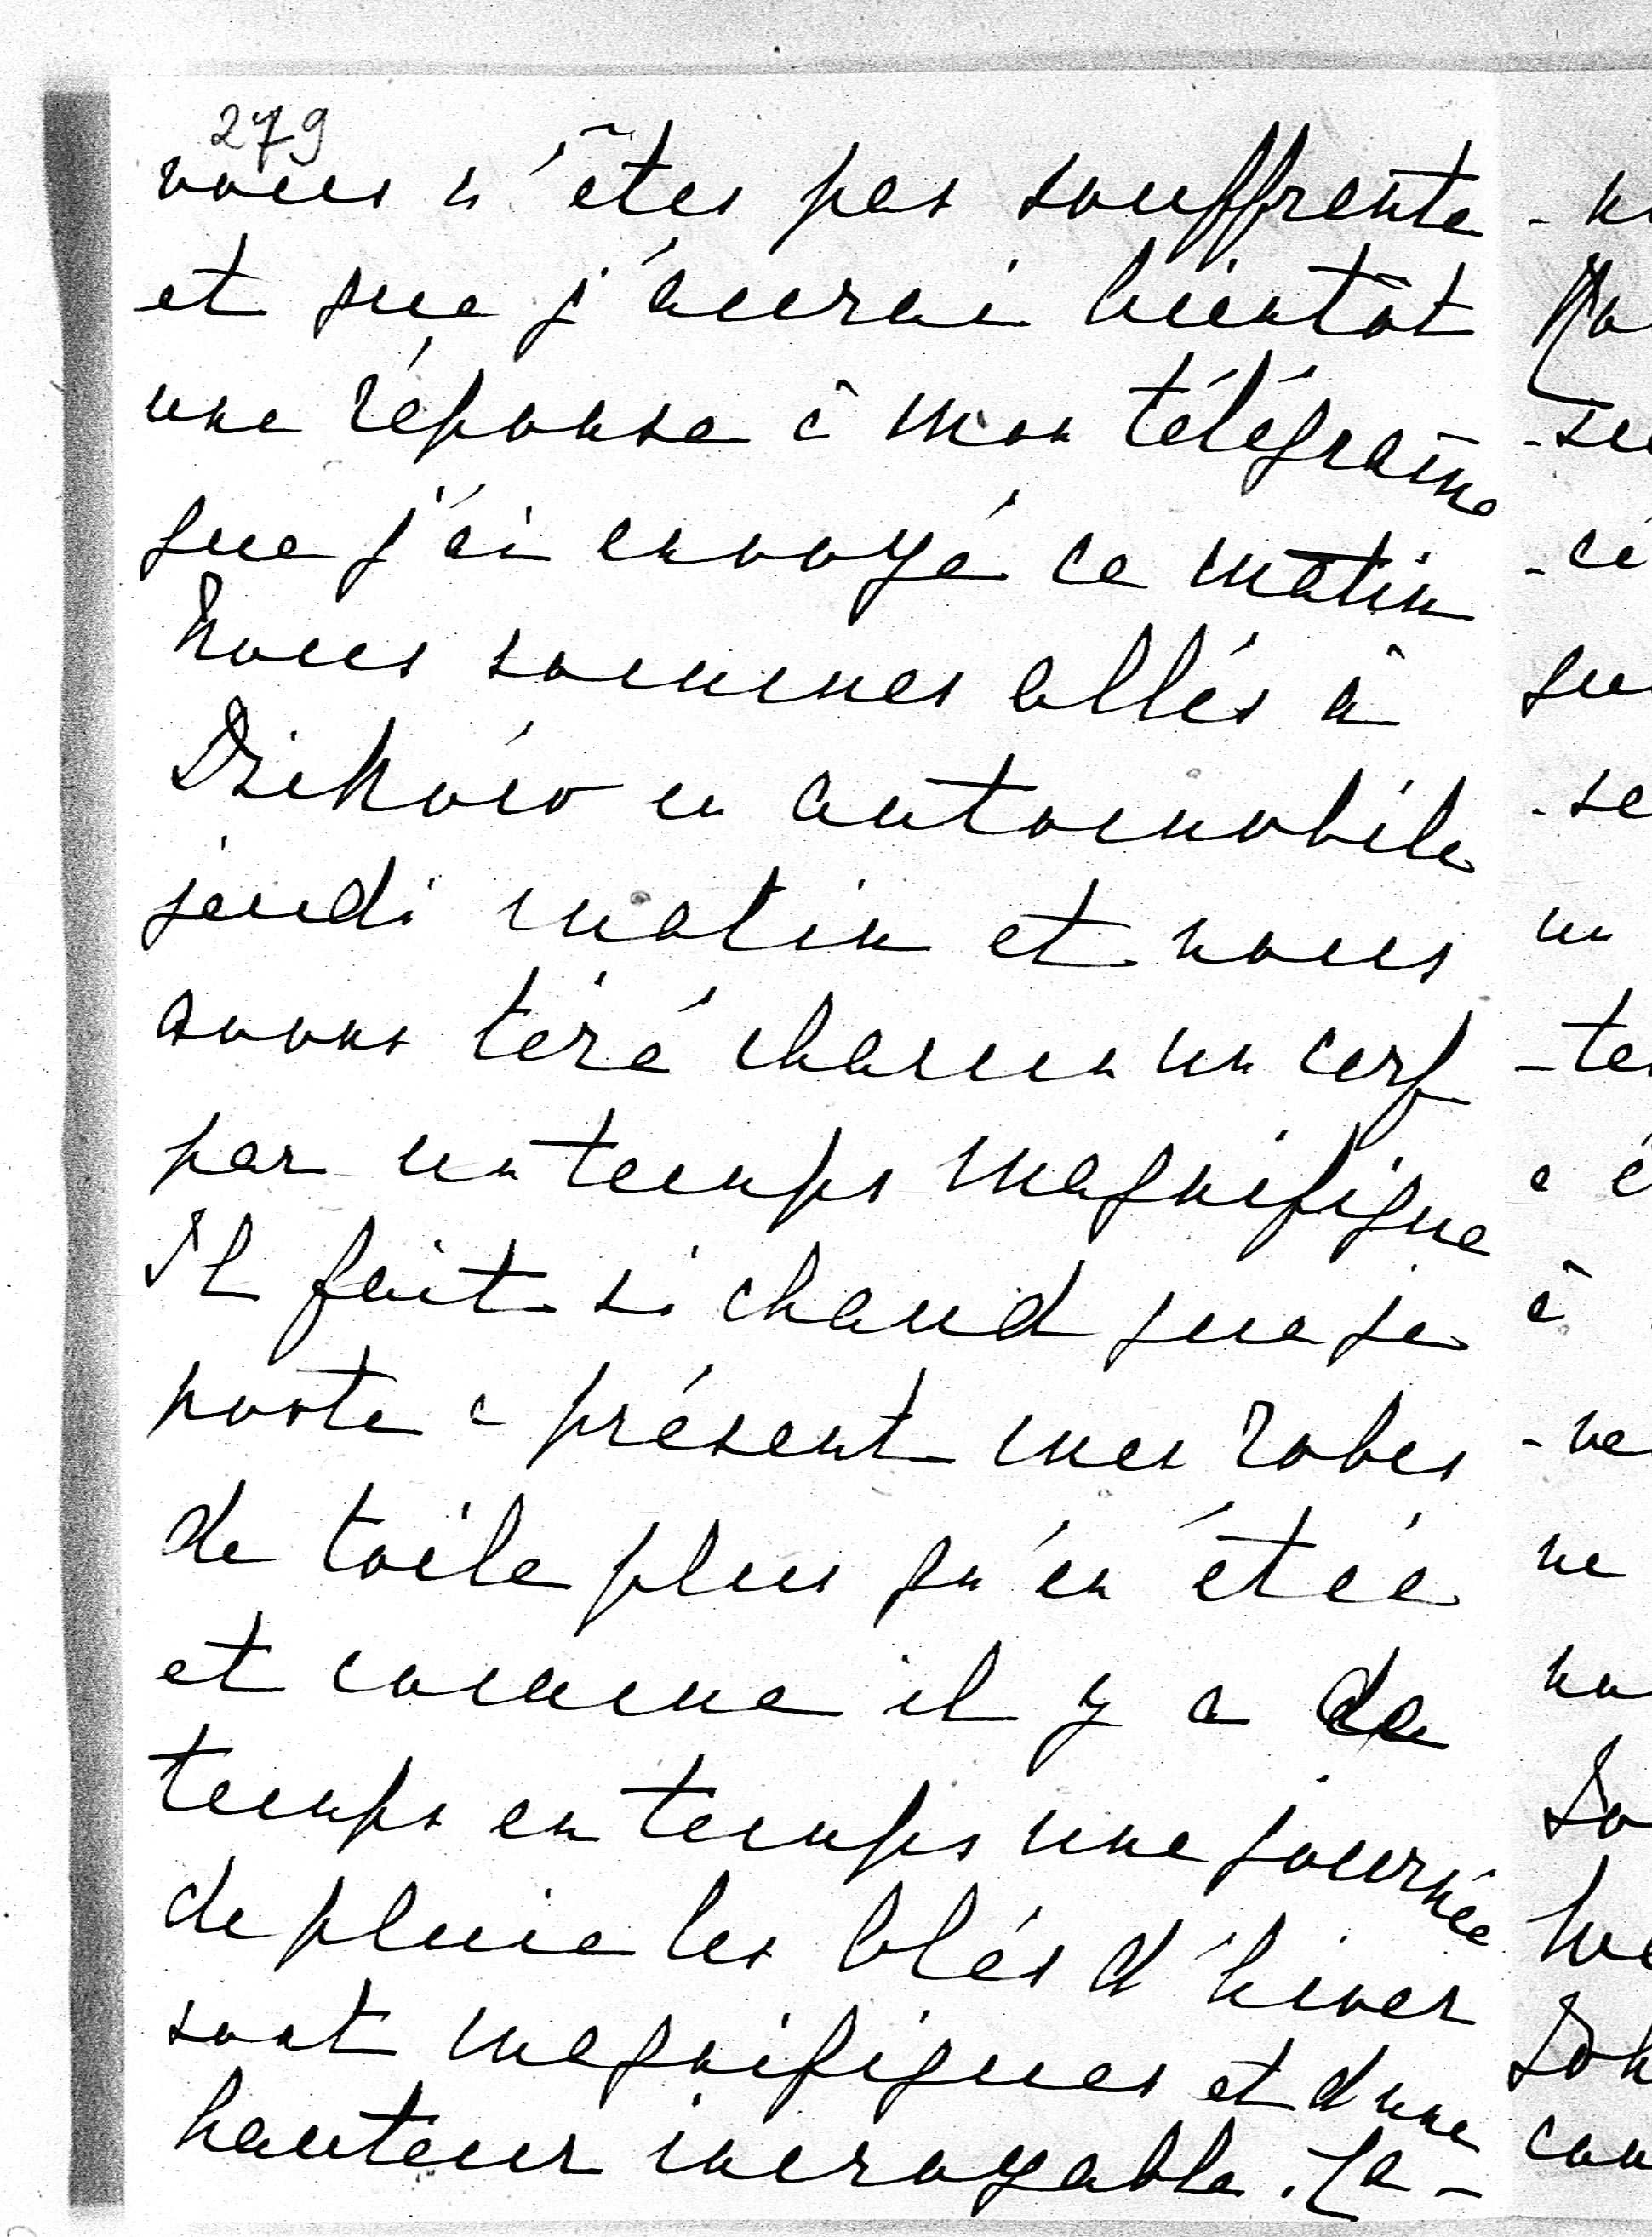 279
vous n'êtes pas souffrante
et que j'aurai bientôt
une réponse à mon télégrame
que j'ai envoyé ce matin
Nous sommes allés à
en automobile
jeudi matin et nous
avons tiré chacun un cerf
par un temps magnifique
Il fait si chaud que je
porte à présent mes robes
de toile plus qu'en étée
et comme il y a de
temps en temps une journée
de pluie les blés d'hiver
sont magnifiques et d'une
hauteur incroyable. La-